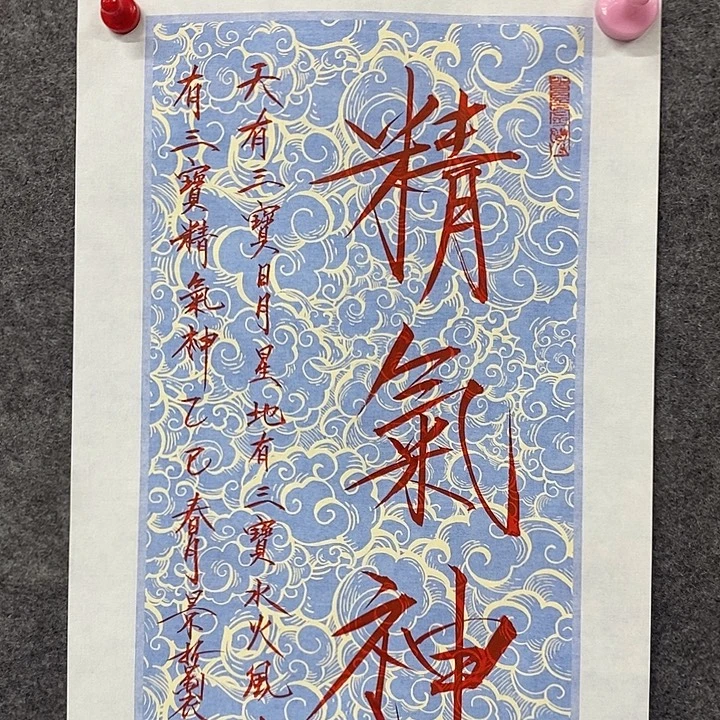 精氣神
天有三寶日月星地有三寶水火風
有三寶精氣神乙巳春月